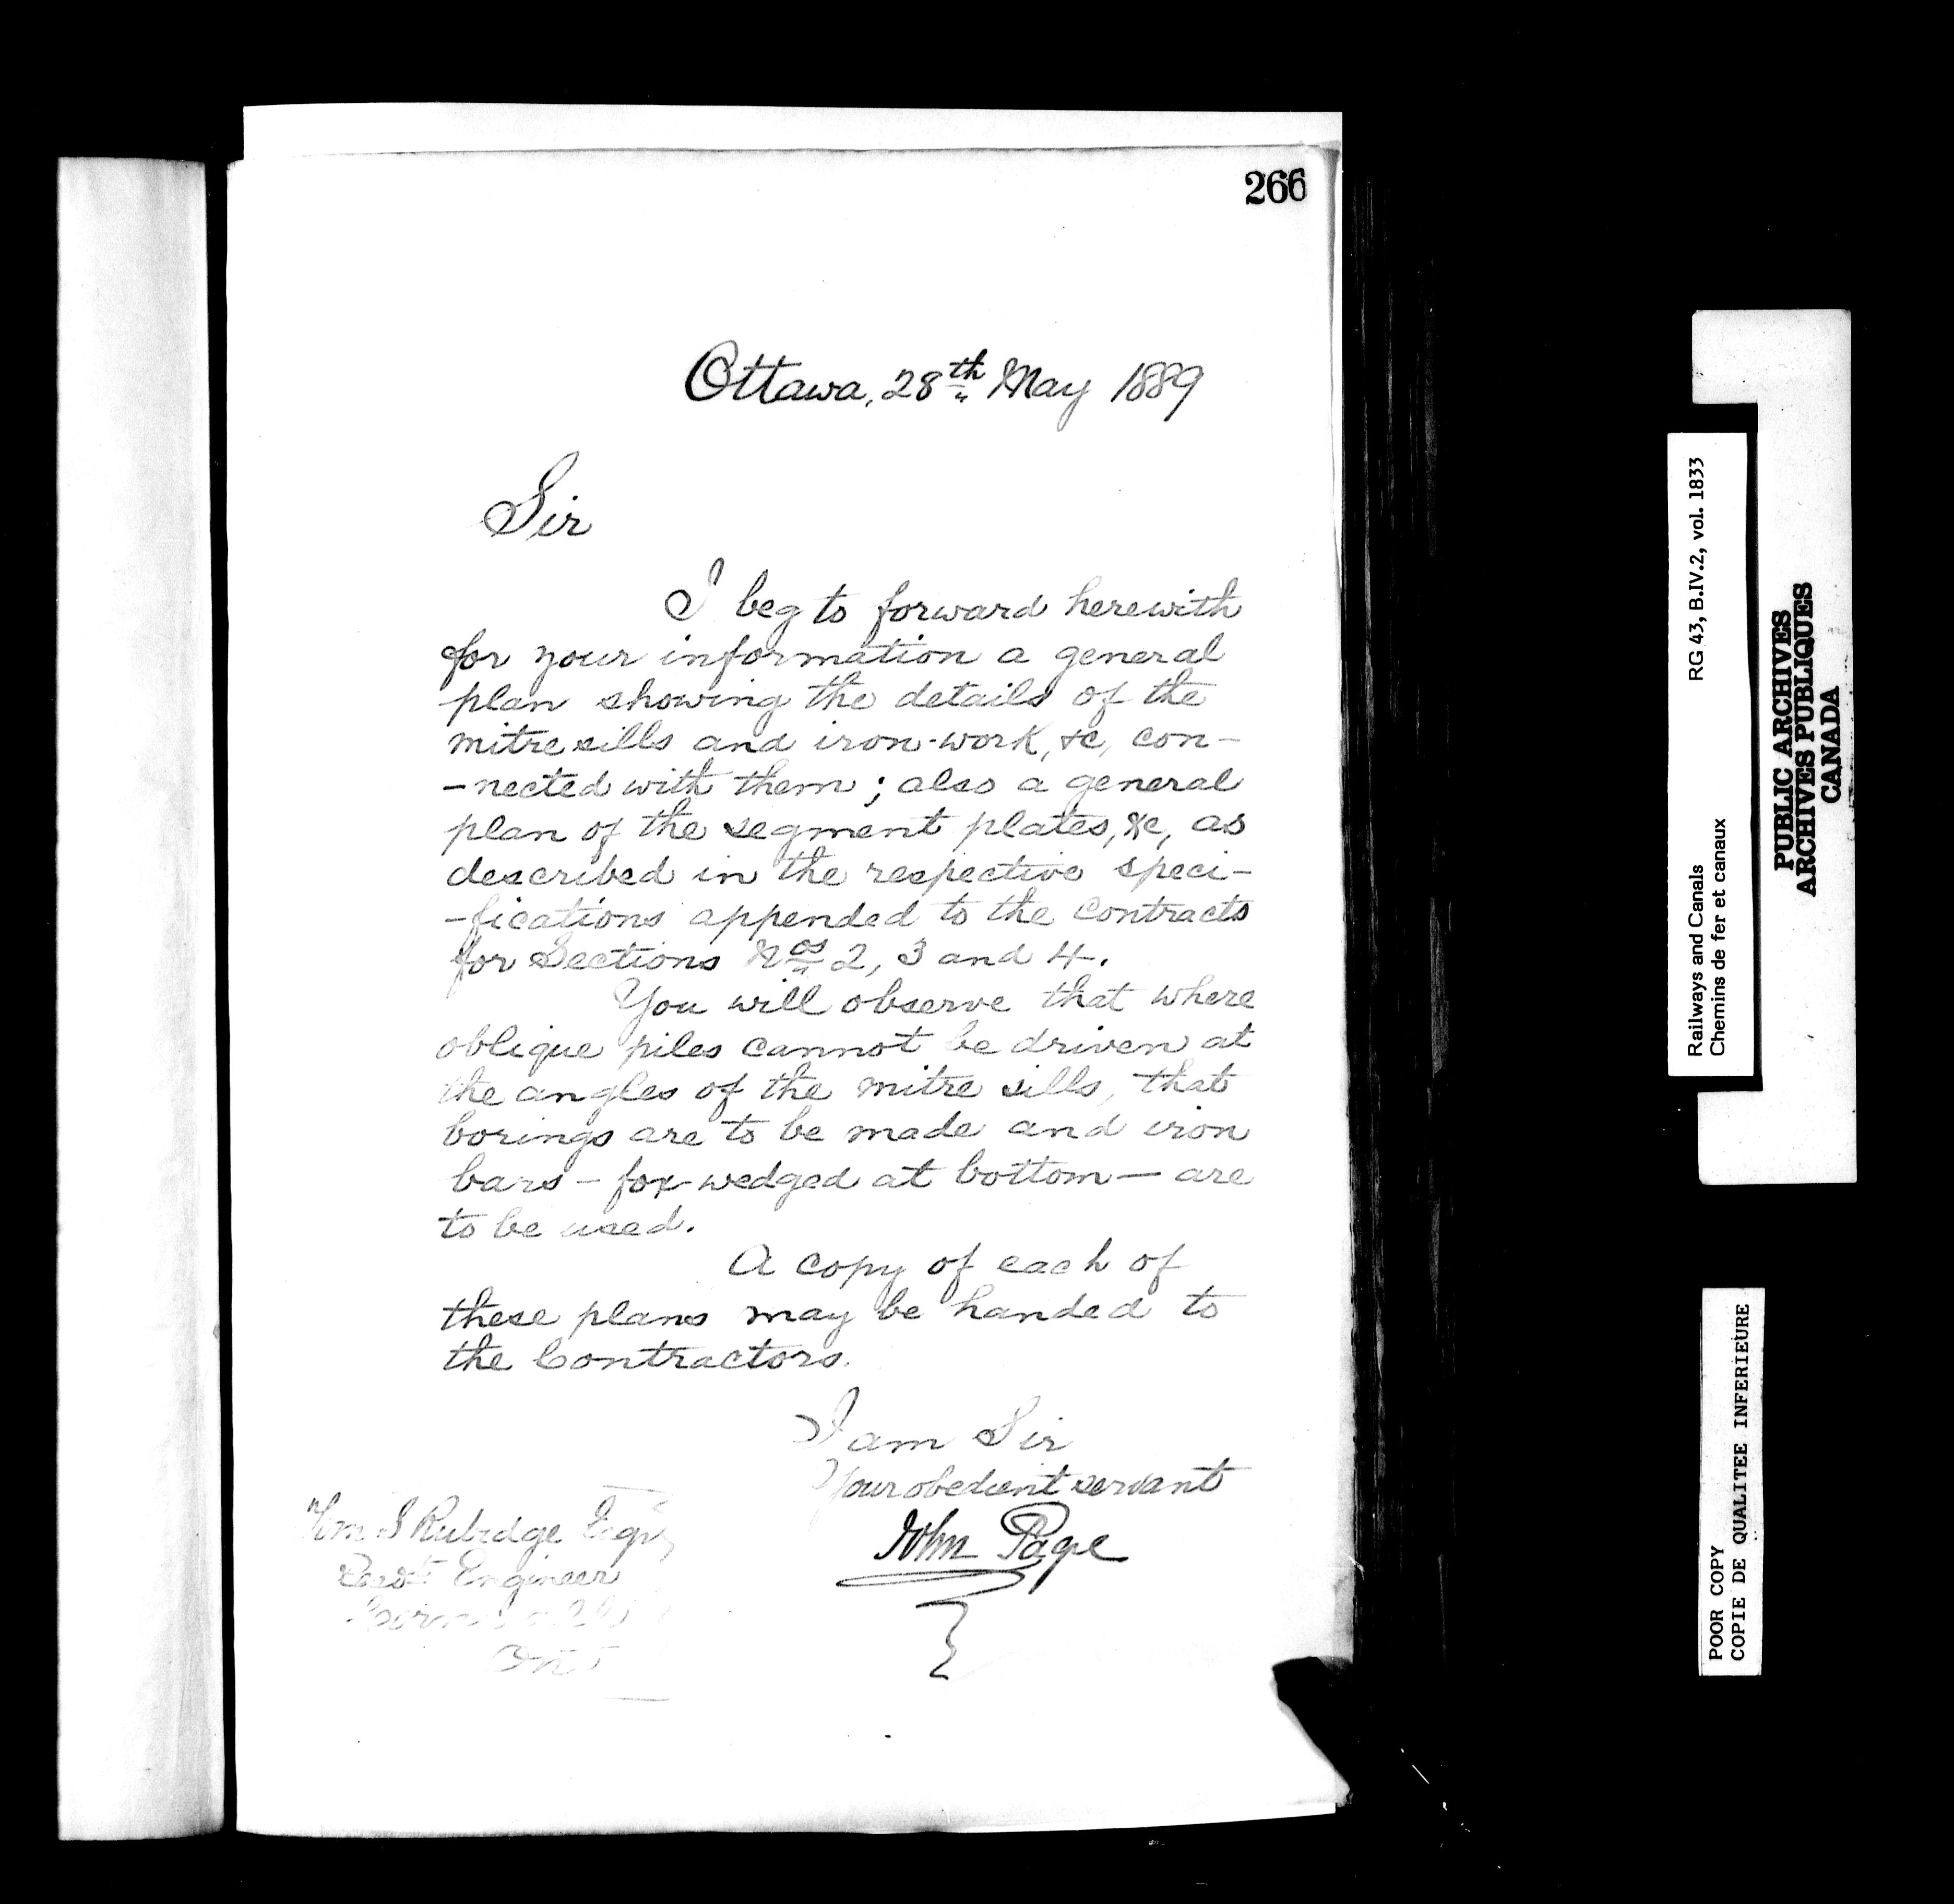 266
Ottawa, 28th May 1889
Sir
I beg to forward herewith
for your information a general
plan showing the details of the
mitre sills and iron-work, &c, con-
-nected with them; also a general
plan of the segment plates, &c, as
described in the respective speci-
-fications appended to the Contracts
for Sections Nos 2, 3 and 4.
You will observe that where
oblique piles cannot be driven at
the angles of the mitre sills, that
borings are to be made and iron
bars - fox-wedged at bottom - are
to be used.
A copy of each of
these plans may be handed to
the Contractors.
I am Sir
Your obedient servant
John Page
Wm S Rubidge Esqr
Resdt Engineer
Cornwall
Ont
Railways and Canals RG 43, B.IV.2, vol. 1833
Chemins de fer et canaux
PUBLIC ARCHIVES
ARCHIVES PUBLIQUES
CANADA
POOR COPY
COPIE DE QUALITEE INFERIEURE